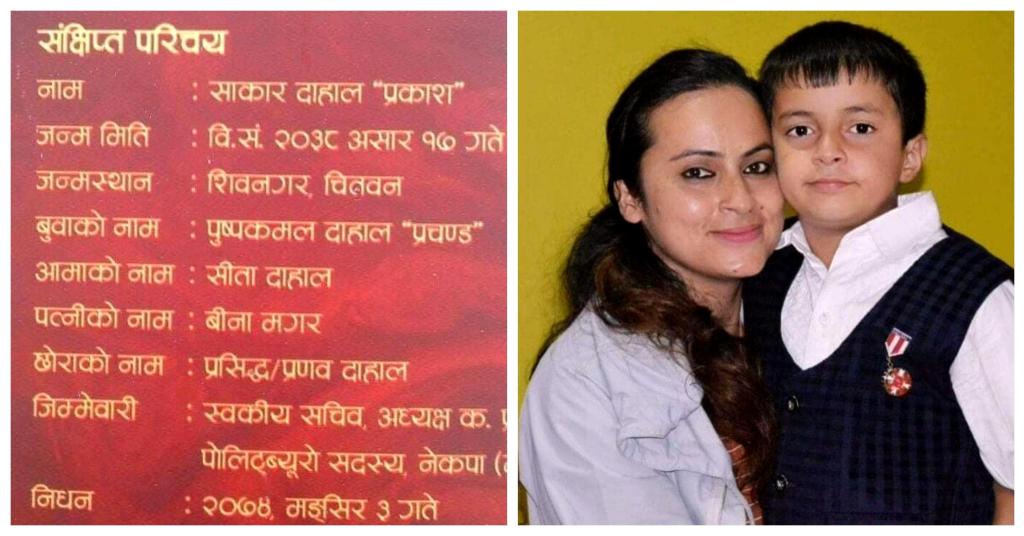 संक्षिप्त परिचय
नाम : साकार दाहाल "प्रकाश"
जन्म मिति : वि.सं. २०३८ असार १७ गते
जन्मस्थान : शिवनगर, चितवन
बुवाको नाम : पुष्पकमल दाहाल "प्रचण्ड"
आमाको नाम : सीता दाहाल
पत्नीको नाम : बीना मगर
छोराको नाम : प्रसिद्ध/प्रणव दाहाल
जिम्मेवारी : स्वकीय सचिव, अध्यक्ष क.
पोलिट्ब्यूरो सदस्य, नेकपा
निधन : २०७४, मङ्सिर ३ गते